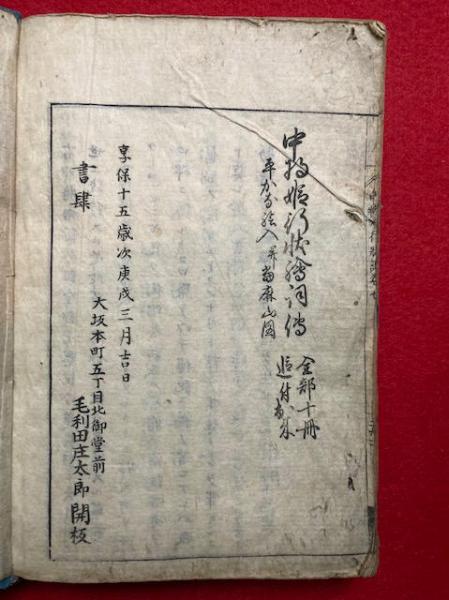 中将姫行状繪詞傳
平かな絵入并當麻山圖
全部十冊
追付出来
享保十五歳次庚戌三月吉日
大坂本町五丁目北御堂前
書肆
毛利田庄太郎開板